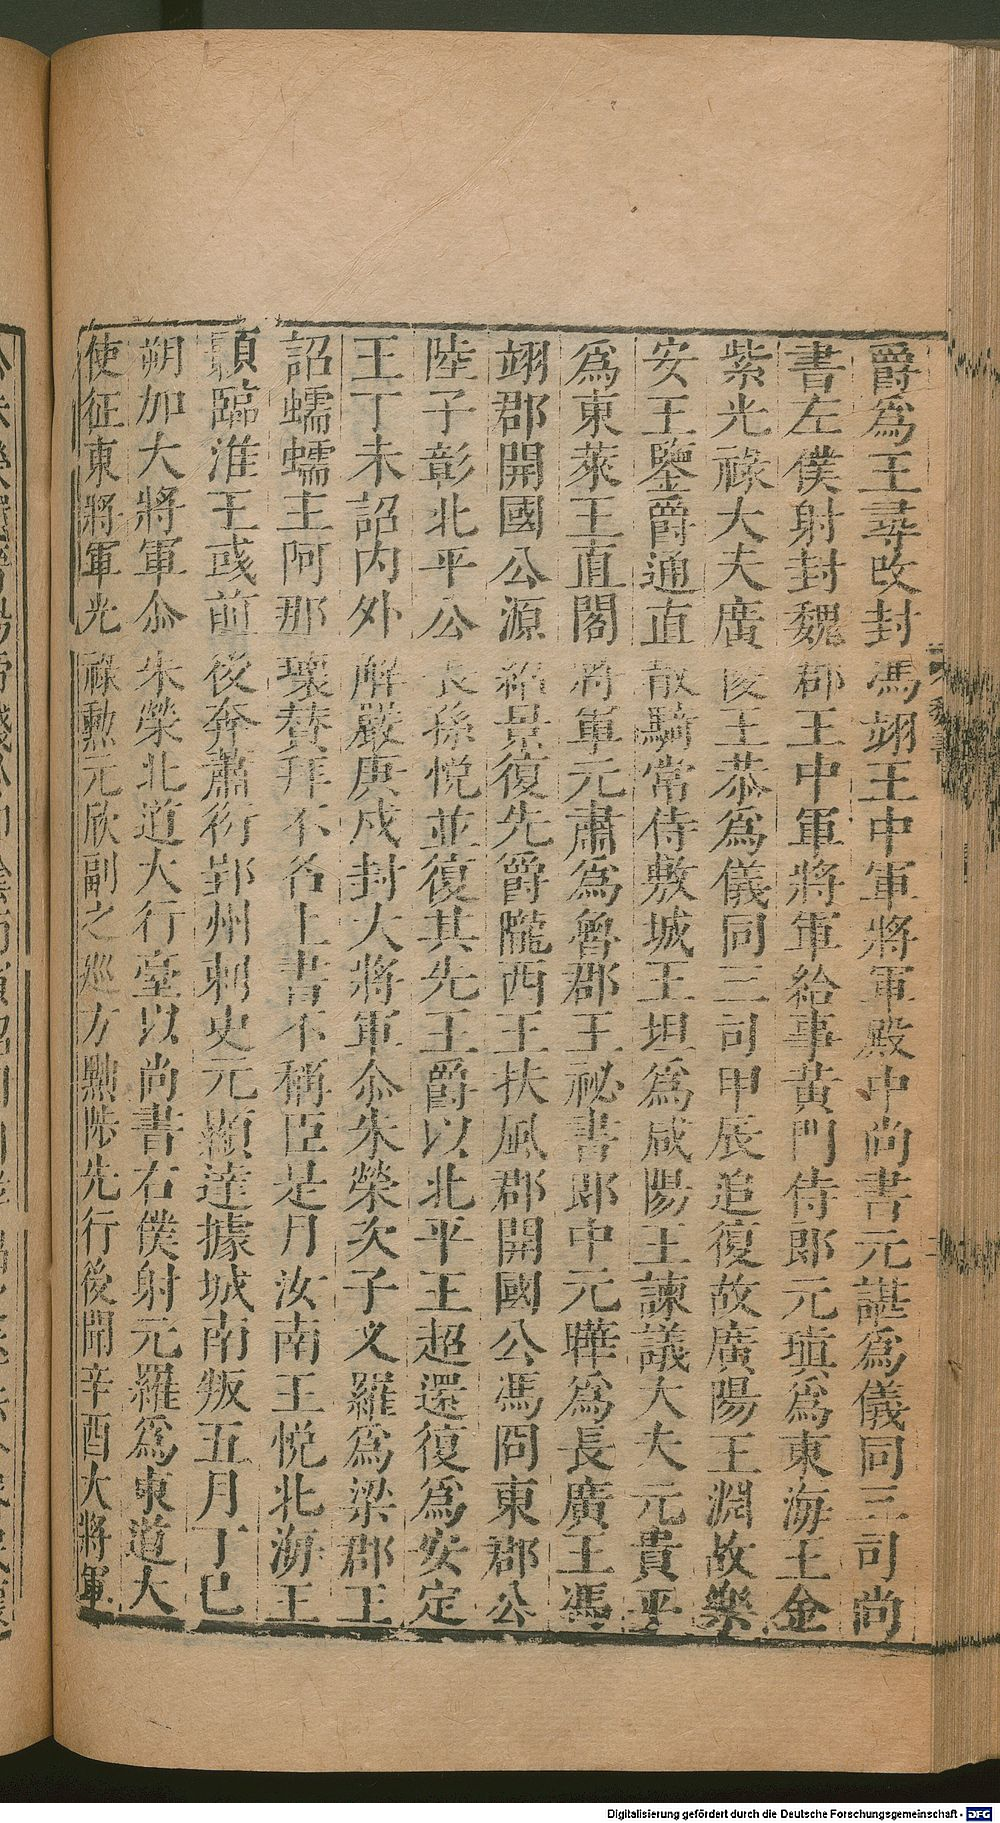 爵為王尋改封馮翊王中軍將軍殿中尚書元諶為儀同三司尚
書左僕射封魏郡王中軍將軍給事黃門侍郎元瑱為東海王金
紫光祿大夫廣陵王恭為儀同三司甲辰追復故廣陽王淵故樂
安王鑒爵通直散騎常侍敷城王坦為咸陽王諫議大夫元貴平
為東萊王直閣將軍元肅為魯郡王祕書郎中元曄為長廣王馮
翊郡開國公源紹景復先爵隴西王扶風郡開國公馮冏東郡公
陸子彰北平公長孫悅並復其先王爵以北平王超還復為安定
王丁未詔內外解嚴庚戌封大將軍尒朱榮次子义羅為梁郡王
詔蠕蠕主阿那瓌贊拜不名上書不稱臣是月汝南王悅北海王
顥臨淮王彧前後奔蕭衍郢州刺史元顯達據城南叛五月丁巳
朔加大將軍尒朱榮北道大行臺以尚書右僕射元羅為東道大
使征東將軍光祿勳元欣副之巡方黜陟先行後聞辛酉大將軍
Digitalisierung gefördert durch die Deutsche Forschungsgemeinschaft - DFG